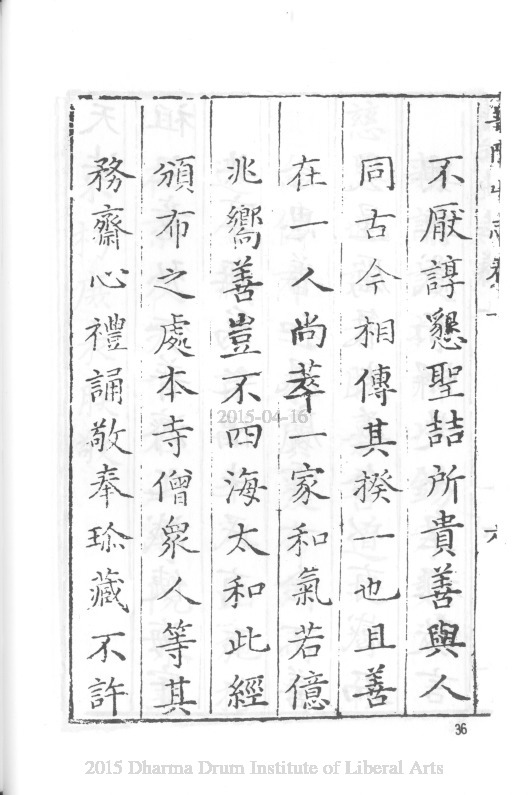 不厭諄懇聖喆所貴善與人
同古今相傳其揆一也且善
在一人尚萃一家和氣若億
兆嚮善豈不四海太和此經
頒布之處本寺僧衆人等其
務齋心禮誦敬奉珍藏不許
36
2015-04-16
2015 Dharma Drum Institute of Liberal Arts